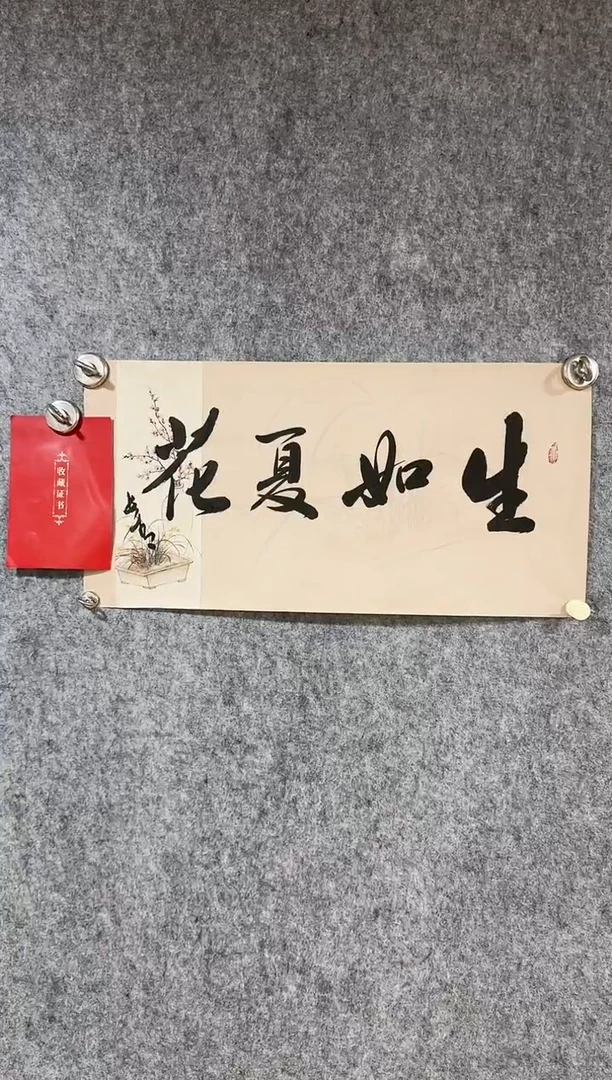 生如夏花
收藏证书